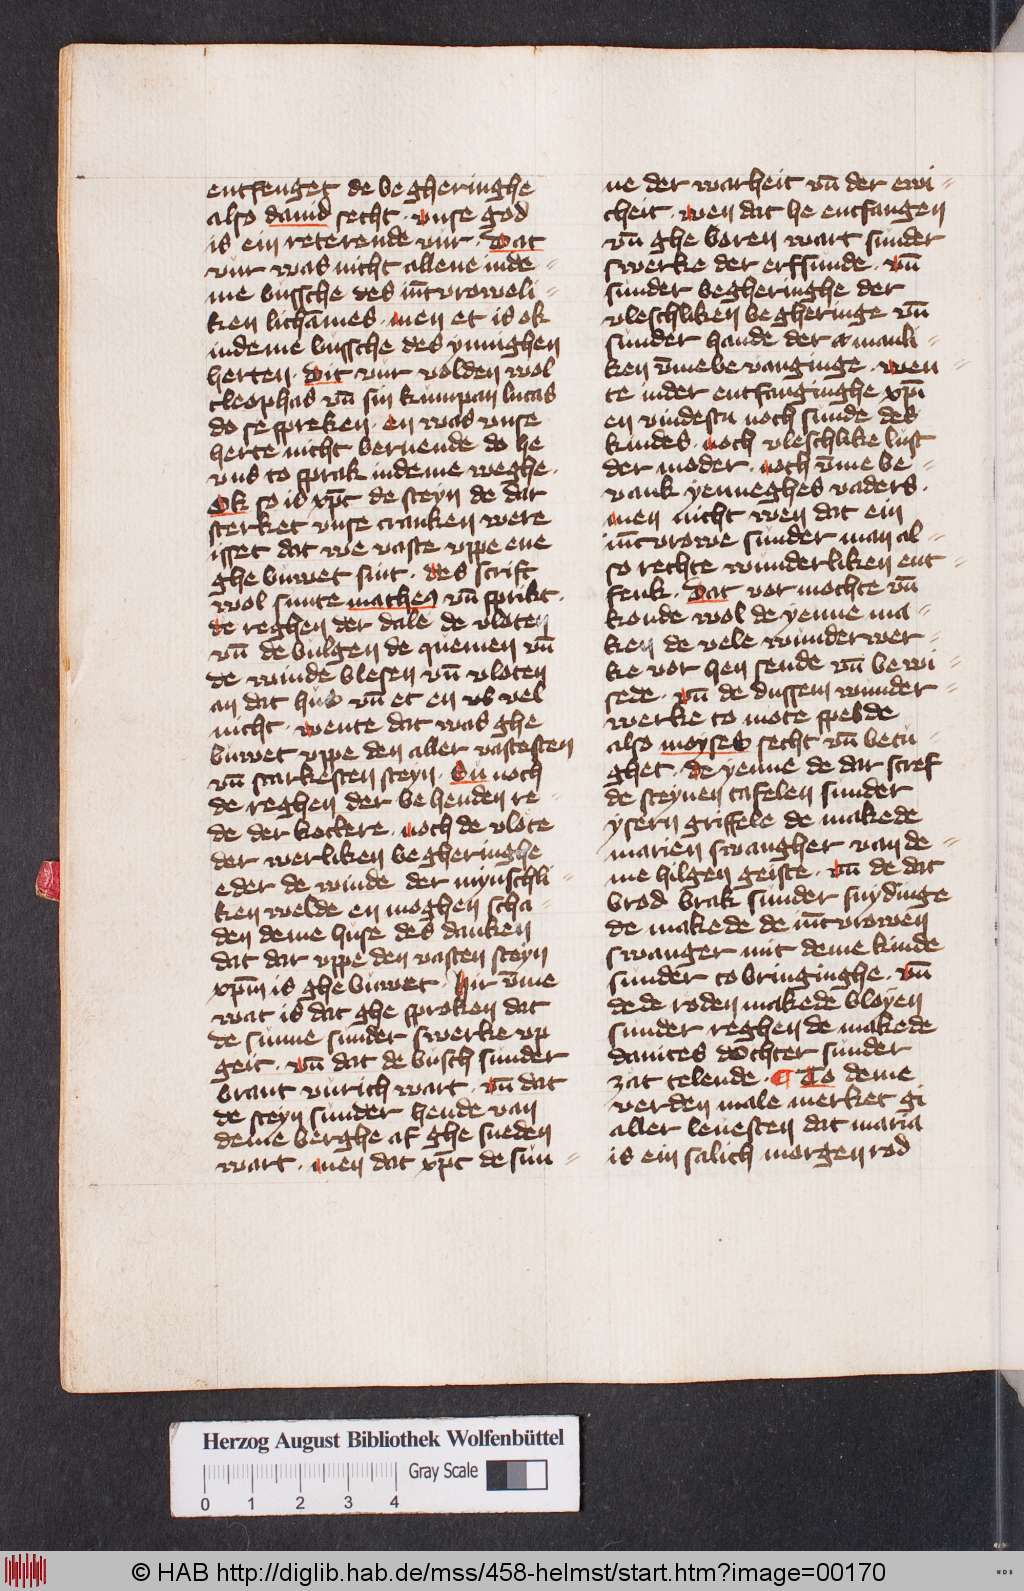 entfenget de begheringhe
also dauid secht · vnse god
is ein reterende vur · Dat
vur was nicht allene inde-
me bussche des iu̅cvroweli-
ken lichames · men et is ok
indeme bussche des ynnighen
herten · Dit vur volden wol
cleophas vn̅ sin kumpan lucas
do se spreken · en was vnse
herte nicht bernende do he
vns to sprak indeme weghe ·
Ok so is xp̅c de steyn de dar
sterket vnse cranken were
isset dat we vaste vppe ene
ghe buwet sint · des scrift
wol sunte matheꝯ vn̅ sprikt ·
de reghen der dale de vloten
vn̅ de bulgen de quemen vn̅
de winde blesen vn̅ vloten
an dat hus vn̅ et en vs vel
nicht · wente dat was ghe
buwet vppe den aller vastesten
vn̅ starkesten steyn · Su noch
de reghen der behenden re-
de der kockere · noch de vlote
der werliken begheringhe
eder de winde der mynschli-
ken welde en moghen scha-
den deme huse des danken
dat dar vppe den vasten steyn
xp̅m is ghe buwet · Hir vm̅e
wat is dat ghe sproken dat
de sunne sunder swerke vp
geit · vn̅ dat de busch sunder
brant vurich wart · vn̅ dat
de steyn sunder hende van
deme berghe af ghe sneden
wart · men dat xp̅c de sun-
ne der warheit vn̅ der ewi-
cheit · wen dat he entfangen
vn̅ ghe boren wart sunder
swerke der erfsunde · vn̅
sunder begheringhe der
vleschliken begheringe vn̅
sunder hande der manli-
ken vm̅bevanginge · wen-
te inder entfanginghe xp̅i
en vindestu noch sunde des
kindes · noch vleschlike lust
der moder · noch vm̅e be-
vank yenneghes vaders ·
men nicht wen dat ein
iu̅cvrowe sunder man al-
so rechte wunderliken ent-
fenk · Dat vor mochte vn̅
konde wol de yenne ma-
ken de vele wunderwer-
ke vor hen sende vn̅ bewi-
sede · vn̅ de dussem wunder-
werke to mote spelde
also moyses secht vn̅ betu-
ghet · de yenne de dar scref
de steynen tafelen sunder
ysern griffele de makede
marien swangher van de-
me hilgen geiste · vn̅ de dat
brod brak sunder snydinge
de makede de iu̅cvrowen
swanger mit deme kinde
sunder to bringinghe · vn̅
de de roden makede bloyen
sunder reghen de makede
dauites dochter sunder
zat telende · ¶ To deme
verden male merket gi
aller leuesten dat maria
is ein salich morgen rod
Herzog August Bibliothek Wolfenbüttel
Gray Scale
0 1 2 3 4
© HAB http://diglib.hab.de/mss/458-helmst/start.htm?image=00170